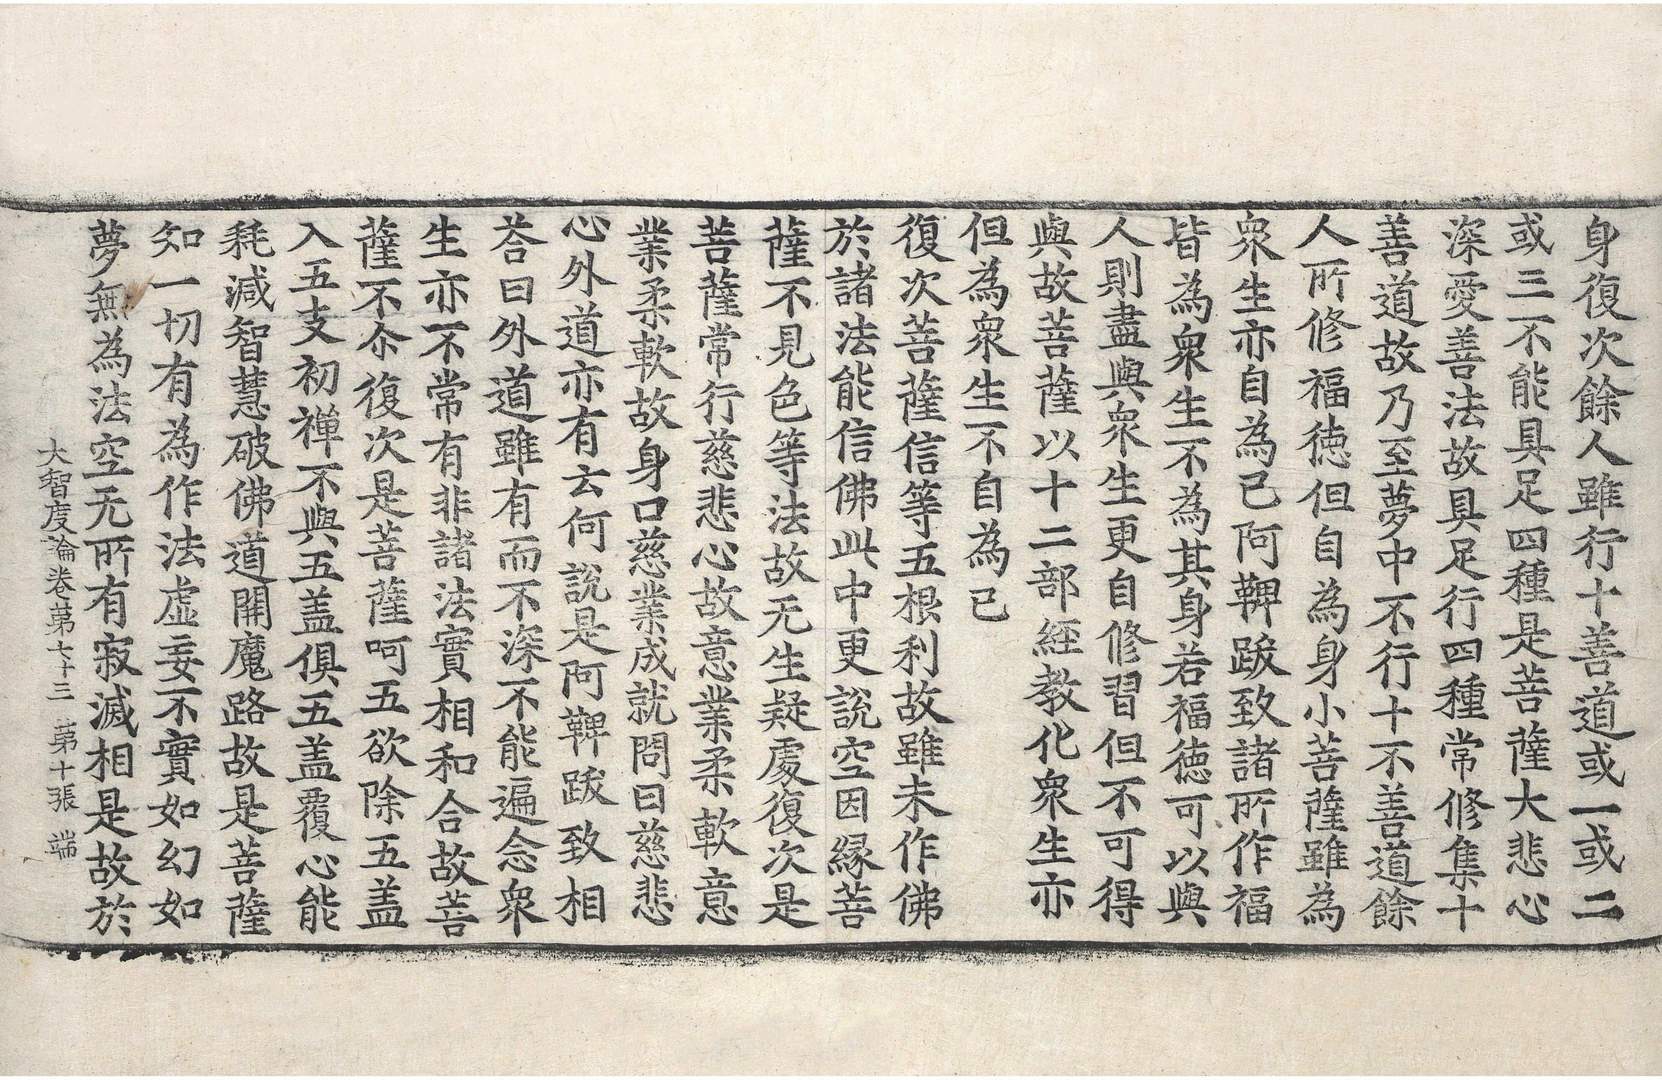 身復次餘人雖行十善道或一或二
或三不能具足四種是菩薩大悲心
深愛善法故具足行四種常修集十
善道故乃至夢中不行十不善道餘
人所修福徳但自為身小菩薩雖為
衆生亦自為己阿鞞跋致諸所作福
皆為衆生不為其身若福徳可以與
人則盡與衆生更自修習但不可得
與故菩薩以十二部經教化衆生亦
但為衆生不自為己
復次菩薩信等五根利故雖未作佛
於諸法能信佛此中更説空因縁菩
薩不見色等法故无生疑處復次是
菩薩常行慈悲心故意業柔軟意
業柔軟故身口慈業成就問曰慈悲
心外道亦有云何説是阿鞞跋致相
荅曰外道雖有而不深不能遍念衆
生亦不常有非諸法實相和合故菩
薩不尒復次是菩薩呵五欲除五盖
入五支初禅不與五盖俱五盖覆心能
耗減智慧破佛道開魔路故是菩薩
知一切有為作法虚妄不實如幻如
夢無為法空无所有寂滅相是故於
大智度論卷苐七十三 苐十張 端